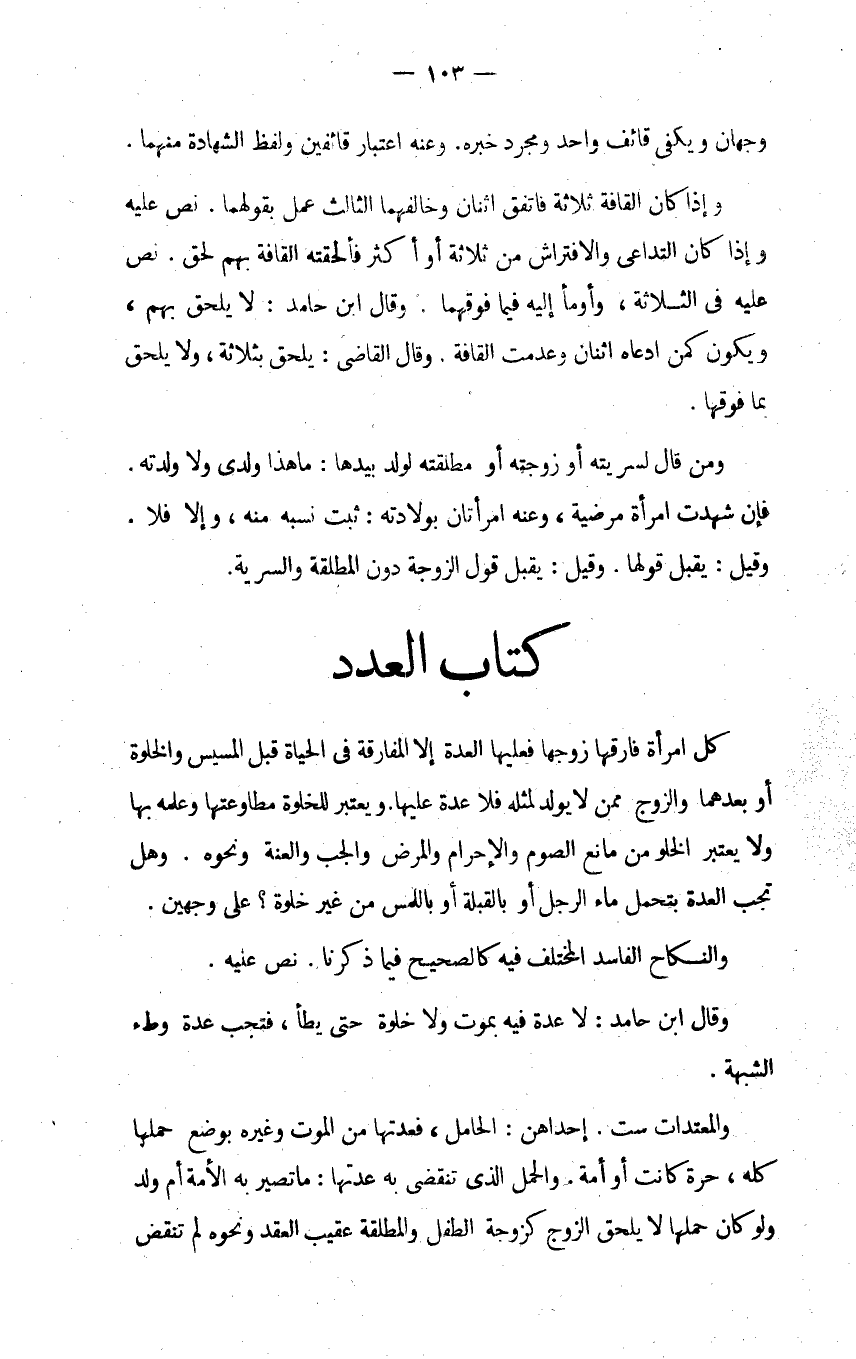 — ١٠٣ —
وجهان ويكفى قائف واحد ومجرد خبره. وعنه اعتبار قائفين ولفظ الشهادة منهما .
وإذا كان القافة ثلاثة فاتفق اثنان وخالفهما الثالث عمل بقولهما . نص عليه
وإذا كان التداعى والافتراش من ثلاثة أو أكثر فألحقته القافة بهم لحق . نص
عليه فى الثــلاثة ، وأومأ إليه فيما فوقهما . وقال ابن حامد : لا يلحق بهم ،
ويكون كمن ادعاه اثنان وعدمت القافة . وقال القاضى : يلحق بثلاثة ، ولا يلحق
بما فوقها .
ومن قال لسريته أو زوجته أو مطلقته لولد بيدها : ماهذا ولدى ولا ولدته .
فإن شهدت امرأة مرضية ، وعنه امرأتان بولادته : ثبت نسبه منه ، وإلا فلا .
وقيل : يقبل قولها . وقيل : يقبل قول الزوجة دون المطلقة والسرية.
كتاب العدد
كل امرأة فارقها زوجها فعليها العدة إلا المفارقة فى الحياة قبل المسيس والخلوة
أو بعدهما والزوج ممن لايولد لمثله فلا عدة عليها. ويعتبر للخلوة مطاوعتها وعلمه بها
ولا يعتبر الخلو من مانع الصوم والإحرام والمرض والجب والعنة ونحوه . وهل
تجب العدة بتحمل ماء الرجل أو بالقبلة أو باللمس من غير خلوة ؟ على وجهين .
والنــكاح الفاسد المختلف فيه كالصحيح فيما ذكرنا . نص عليه .
وقال ابن حامد : لا عدة فيه بموت ولا خلوة حتى يطأ ، فتجب عدة وطء
الشبهة .
والمعتدات ست . إحداهن : الحامل ، فعدتها من الموت وغيره بوضع حملها
كله ، حرة كانت أو أمة . والحمل الذى تنقضى به عدتها : ماتصير به الأمة أم ولد
ولو كان حملها لا يلحق الزوج كزوجة الطفل والمطلقة عقيب العقد ونحوه لم تنقض